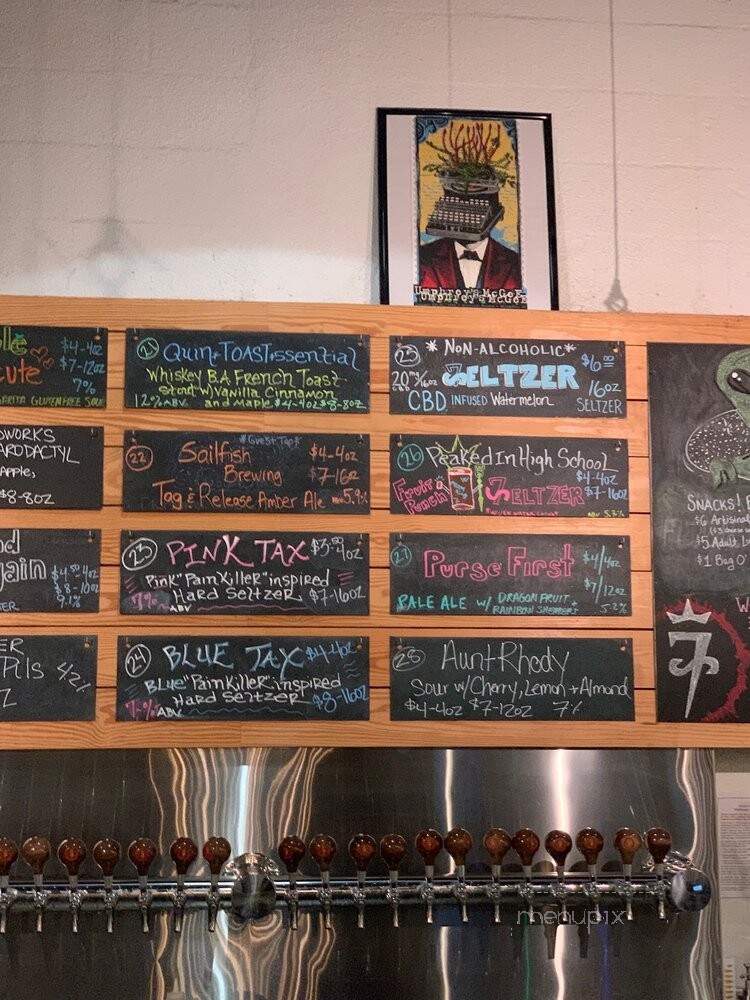 Umphrey's McGee
Umphrey's McGee
$4-4oz
cute $7-12oz
7%
GLUTEN FREE SOUR
WORKS
Apple,
$8-8oz
$4.50-4oz
$8-10oz
9.1%
Pils 4.2%
21 Quin-TOASTessential
Whiskey B.A French Toast
Stout w/Vanilla Cinnamon
12% ABV and Maple $4-4oz $8-8oz
*Guest Tap*
22 Sailfish $4-4oz
Brewing $7-16oz
Tag & Release Amber Ale ABV 5.9%
23 PINK TAX $3.50-4oz
Pink "PainKilleR" inspired
Hard Seltzer $7-16oz
7% ABV
24 BLUE TAX $4-4oz
BLUE "PainKilleR" inspired
Hard Seltzer $8-16oz
7% ABV
25 *NON-ALCOHOLIC* $6.00
20mg/16oz CBD SELTZER 16oz
CBD INFUSED Watermelon SELTZER
26 Peaked In High School
$4-4oz
Fruit Punch SELTZER $7-16oz
ABV 5.3%
27 Purse First $4/4oz
$7/12oz
PALE ALE w/ DRAGON FRUIT +
RAINBOW SHERBET 5.2%
28 Aunt Rhody
Sour w/Cherry, Lemon + Almond
$4-4oz $7-12oz 7%
SNACKS!
$6 Artisinal
$5 Adult
$1 Bag O'
menupix